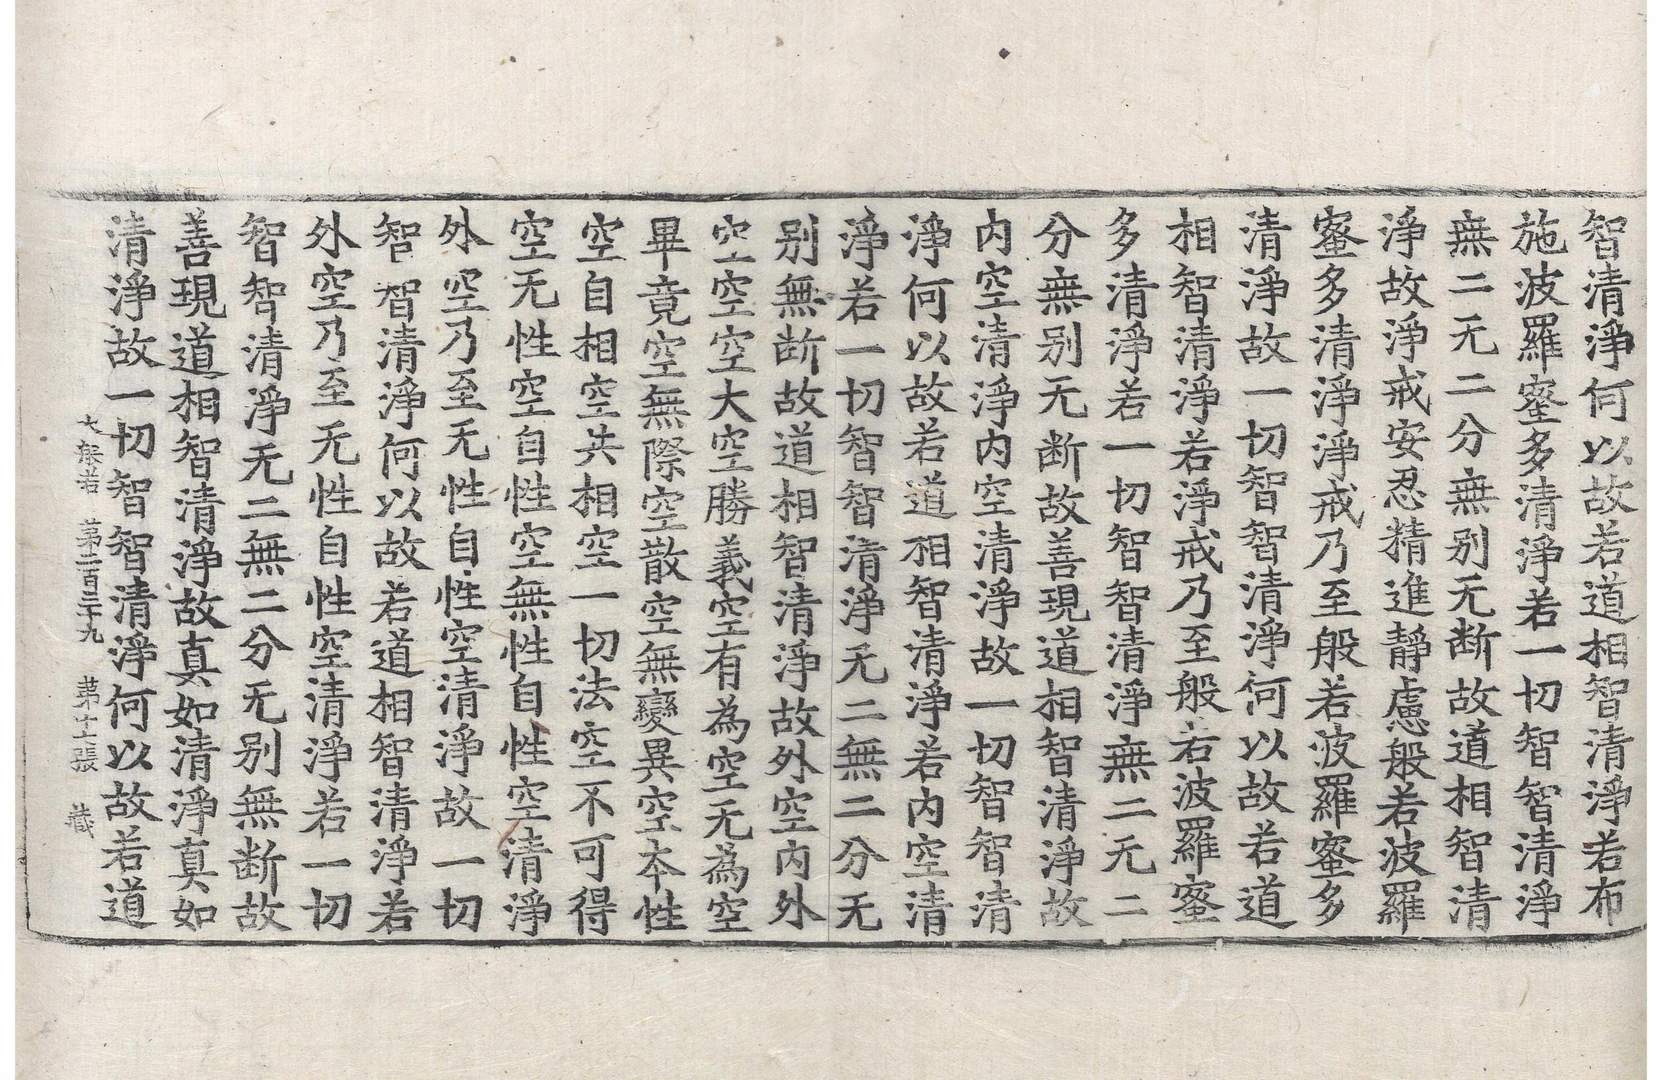 智清淨何以故若道相智清淨若布
施波羅蜜多清淨若一切智智清淨
無二无二分無别无断故道相智清
淨故淨戒安忍精進靜慮般若波羅
蜜多清淨淨戒乃至般若波羅蜜多
清淨故一切智智清淨何以故若道
相智清淨若淨戒乃至般若波羅蜜
多清淨若一切智智清淨無二无二
分無别无断故善現道相智清淨故
内空清淨内空清淨故一切智智清
淨何以故若道相智清淨若内空清
淨若一切智智清淨无二無二分无
别無断故道相智清淨故外空内外
空空空大空勝義空有為空无為空
畢竟空無際空散空無變異空本性
空自相空共相空一切法空不可得
空无性空自性空無性自性空清淨
外空乃至无性自性空清淨故一切
智智清淨何以故若道相智清淨若
外空乃至无性自性空清淨若一切
智智清淨无二無二分无别無断故
善現道相智清淨故真如清淨真如
清淨故一切智智清淨何以故若道
大般若 苐二百三十九 苐十一張 藏